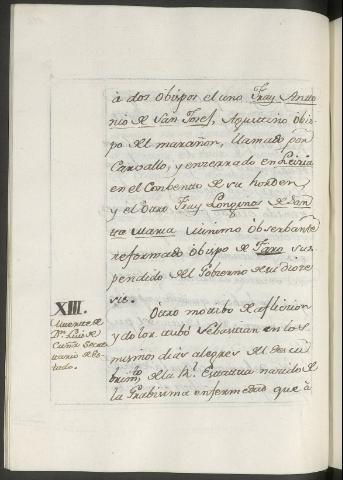 à dos obispos el uno Fray Anto
nio de San Josef, Agustino obis-
po del marañon, llamado por
Carvallo, y encerrado en Leiria
en el Conbento de su horden,
y el otro Fray Longinos de San
ta Maria Minimo obserbante
reformado obispo de Faro sus
pendido del Gobierno de su dioce
sis.
XIII.
Muerte de
Dn. Luis de
Cuña Secre
tario de Es-
tado.
Otro motibo de afliccion
y dolor tubo Sebastian en los
mismos dias alegres del descu
brimto. de la
la grabisima enfermedad que à